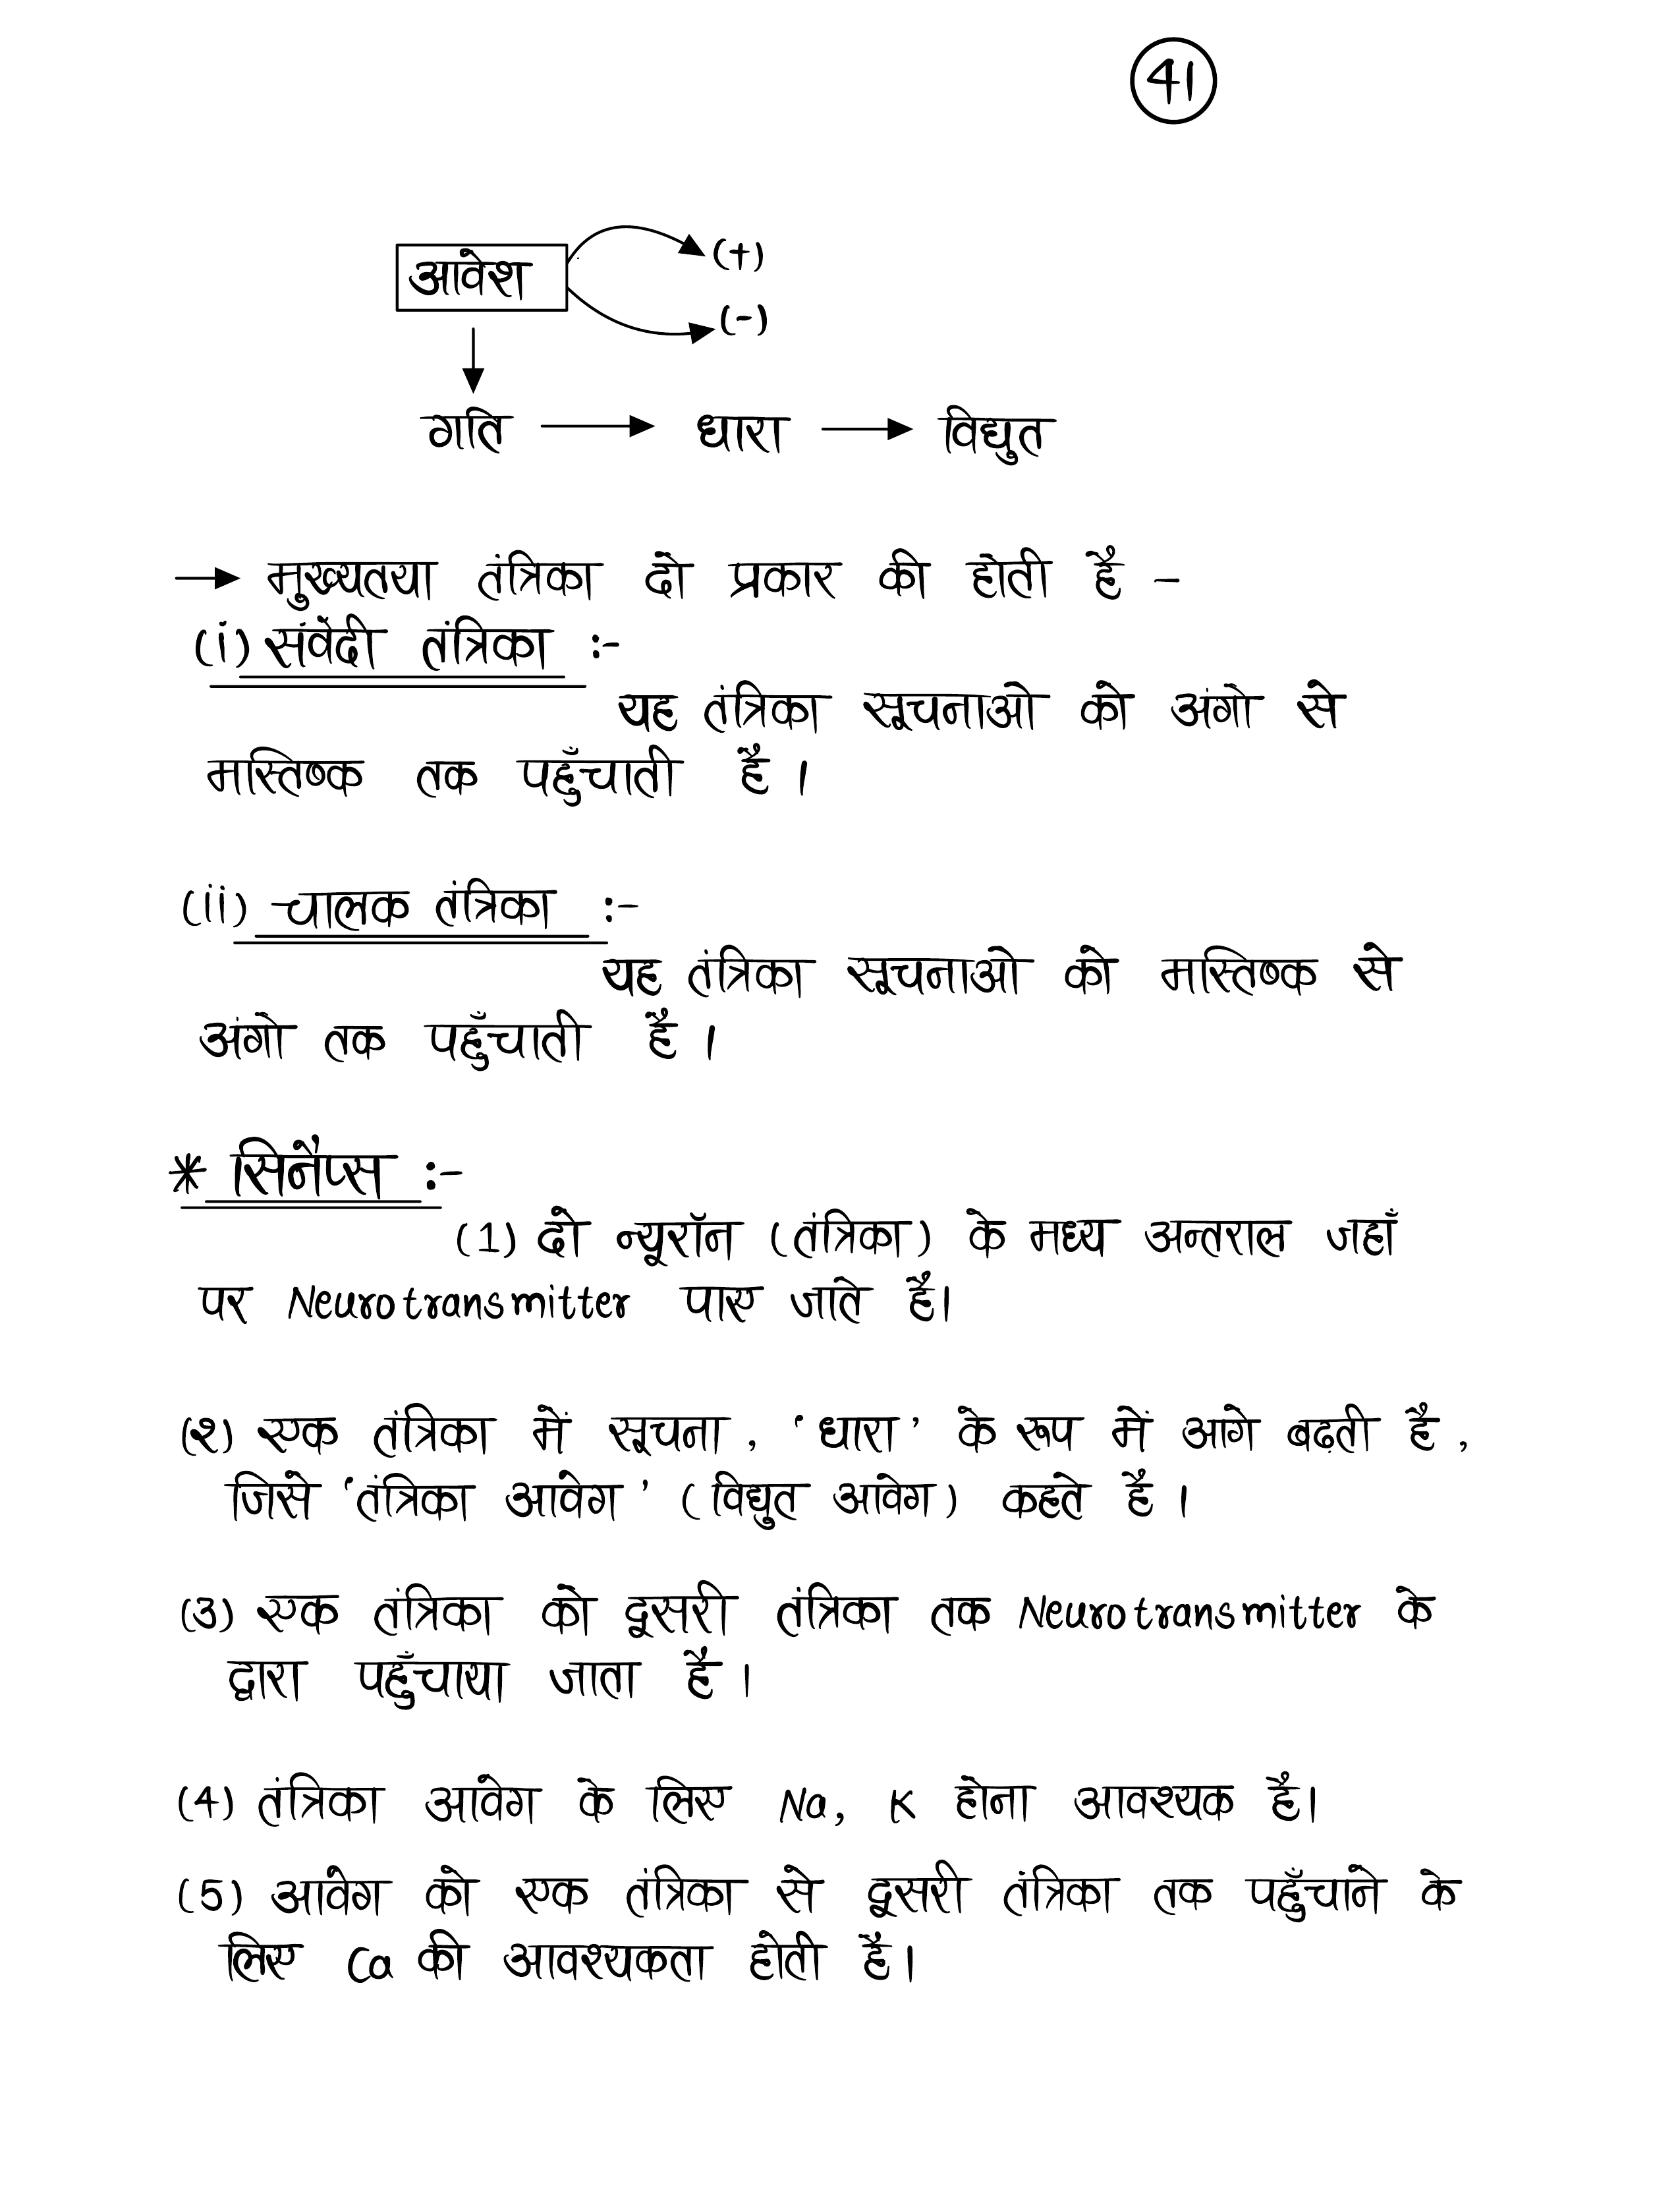 41
आवेश
(+)
(-)
गति → धारा → विद्युत
→ मुख्यतया तंत्रिका दो प्रकार की होती है -
(i) संवेदी तंत्रिका :-
यह तंत्रिका सूचनाओ को अंगो से
मस्तिष्क तक पहुँचाती है ।
(ii) चालक तंत्रिका :-
यह तंत्रिका सूचनाओ को मस्तिष्क से
अंगो तक पहुँचाती है ।
* सिनैप्स :-
(1) दो न्यूरॉन (तंत्रिका) के मध्य अन्तराल जहाँ
पर Neurotransmitter पाए जाते है।
(२) एक तंत्रिका में सूचना, ‘धारा’ के रूप में आगे बढ़ती है,
जिसे ‘तंत्रिका आवेग’ (विद्युत आवेग) कहते है ।
(3) एक तंत्रिका को दूसरी तंत्रिका तक Neurotransmitter के
द्वारा पहुँचाया जाता है ।
(4) तंत्रिका आवेग के लिए Na, K होना आवश्यक है।
(5) आवेग को एक तंत्रिका से दूसरी तंत्रिका तक पहुँचाने के
लिए Ca की आवश्यकता होती है।